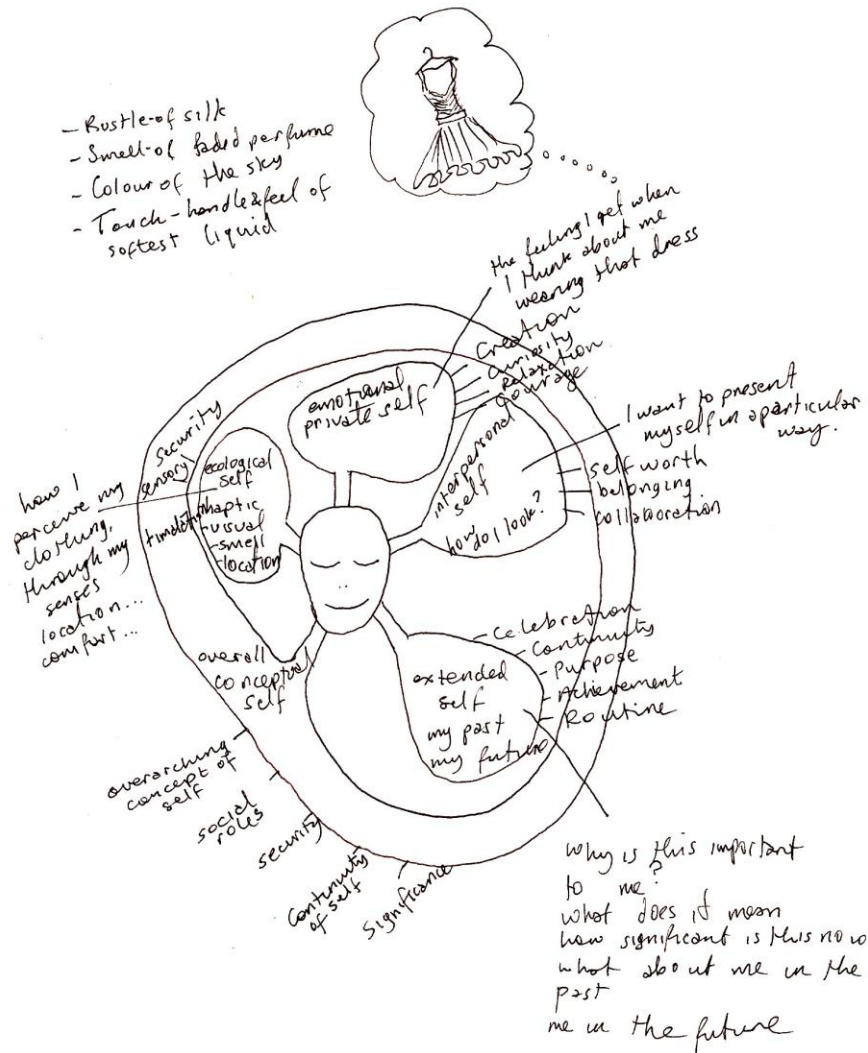 - Rustle-of silk
- Smell-of faded perfume
- Colour of the sky
- Touch-handle & feel of
softest liquid
the feeling I get when
I think about me
wearing that dress
creation
curiosity
relaxation
courage
emotional
private self
I want to present
myself in a particular
way.
interpersonal
self
how
do I look?
self worth
belonging
collaboration
security
sensory
ecological
self
haptic
-visual
-smell
-location
how I
perceive my
clothing,
through my
senses
location...
comfort...
overall
conceptual
self
extended
self
my past
my future
-celebration
-continuity
-purpose
-Achievement
-Routine
overarching
concept of
self
social
roles
security
continuity
of self
significance
why is this important
to me?
what does it mean
how significant is this now
what about me in the
past
me in the future